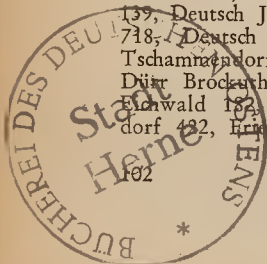 139, Deutsch J
718, Deutsch
Tschammendor
Dürr Brockuth
Eichwald 182,
dorf 482, Frie
102
BÜCHEREI DES DEUTSCHEN OSTENS
Stadt
Herne
*